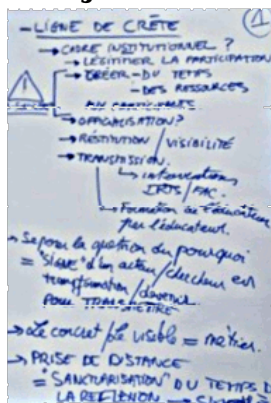 - LIGNE DE CRÊTE ①
→ CADRE INSTITUTIONNEL ?
→ LÉGITIMER LA PARTICIPATION
→ CRÉER - DU TEMPS
- DES RESSOURCES
→ OFFICIALISATION ?
→ RESTITUTION / VISIBILITÉ
→ TRANSMISSION.
↳ interventions
IRTS / FAC.
↳ Formation de l'éducateur
par l'éducateur.
→ Se poser la question du pourquoi
= d'un acteur / chercheur en
transformation / devenir
POUR
→ Le concret / le visible = métier.
→ PRISE DE DISTANCE
= "SANCTUARISATION" DU TEMPS D
LA REFLEXION →